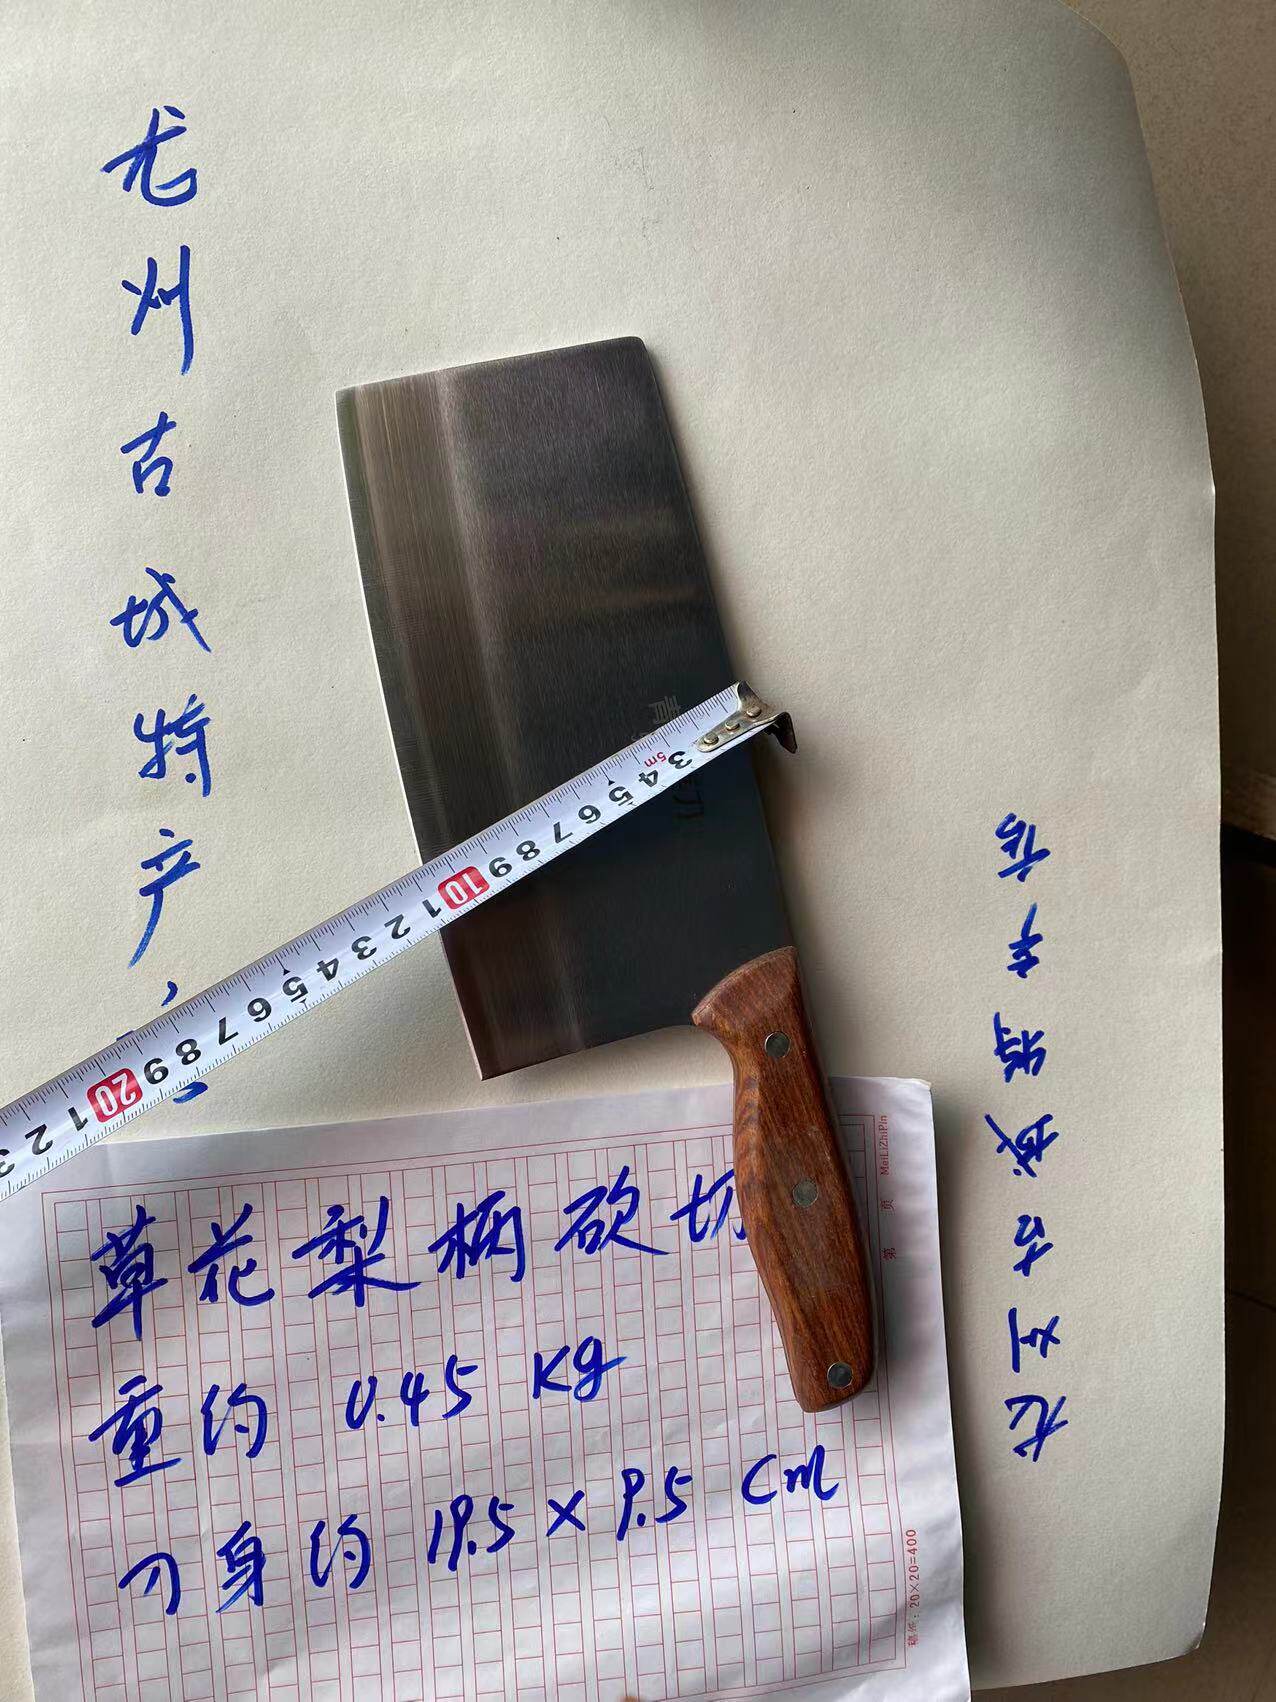 尤州古城特产
草花梨柄砍切
重约 0.45 Kg
刀身约 19.5 × 9.5 cm
青
刀
5m
3 4 5 6 7 8 9 10 1 2 3 4 5 6 7 8 9 20 1 2 3
第 页 MeiLiZhiPin
稿纸：20×20=400